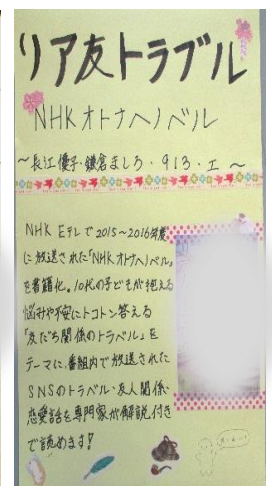 リア友トラブル
NHKオトナヘノベル
~長江優子・鎌倉ましろ・913・エ~
NHK Eテレで2015~2016年度
に放送された「NHKオトナヘノベル」
を書籍化。10代の子どもが抱える
悩みや不安にトコトン答える
「友だち関係のトラブル」を
テーマに、番組内で放送された
SNSのトラブル・友人関係・
恋愛話を専門家が解説付き
で読めます!